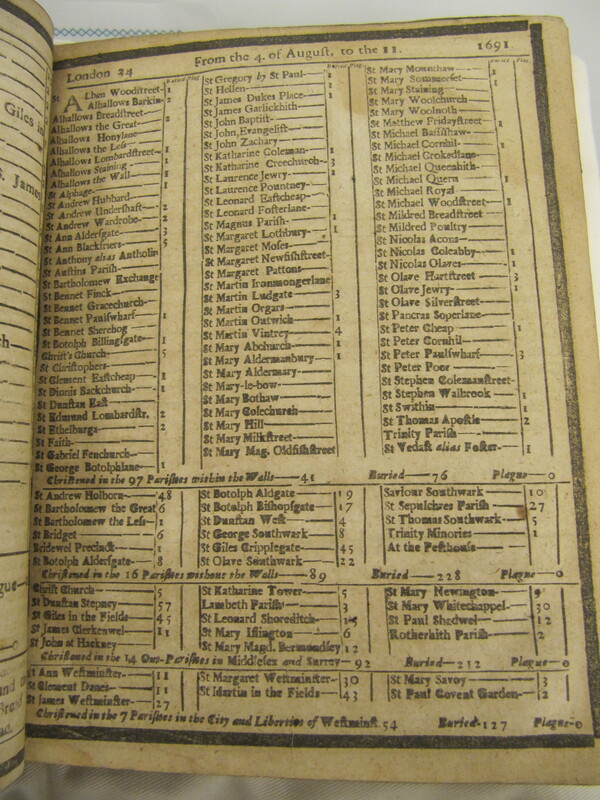 London 34 From the 4. of Auguſt, to the 11. 1691
Buried Plag.
St ALban Woodſtreet— 1
Alhallows Barkin— 2
Alhallows Breadſtreet—
Alhallows the Great— 2
Alhallows Honylane—
Alhallows the Leſs— 1
Alhallows Lombardſtreet— 1
Alhallows Staining— 1
Alhallows the Wall— 1
St Alphage—
St Andrew Hubbard—
St Andrew Underſhaft— 2
St Andrew Wardrobe— 2
St Ann Alderſgate— 3
St Ann Blackfriers— 5
St Anthony alias Antholin
St Auſtins Pariſh—
St Bartholomew Exchange
St Bennet Finck—
St Bennet Gracechurch—
St Bennet Paulſwharf— 1
St Bennet Sherehog—
St Botolph Billingſgate— 1
Chriſt's Church— 5
St Chriſtophers—
St Clement Eaſtcheap— 1
St Dionis Backchurch— 1
St Dunſtan Eaſt—
St Edmund Lombardſtr. 2
St Ethelburga— 2
St Faith—
St Gabriel Fenchurch—
St George Botolphlane— 1
Buried Plag.
St Gregory by St Paul— 1
St Hellen— 1
St James Dukes Place— 1
St James Garlickhith—
St John Baptiſt—
St John Evangeliſt—
St John Zachary—
St Katharine Coleman— 1
St Katharine Creechurch— 3
St Laurence Jewry— 1
St Laurence Pountney—
St Leonard Eaſtcheap—
St Leonard Foſterlane—
St Magnus Pariſh— 1
St Margaret Lothbury— 1
St Margaret Moſes—
St Margaret Newfiſhſtreet—
St Margaret Pattons—
St Martin Ironmongerlane
St Martin Ludgate— 3
St Martin Orgars—
St Martin Outwich— 1
St Martin Vintrey— 4
St Mary Abchurch— 1
St Mary Aldermanbury— 1
St Mary Aldermary—
St Mary-le-bow—
St Mary Bothaw—
St Mary Colechurch—
St Mary Hill—
St Mary Milkſtreet—
St Mary Mag. Oldfiſhſtreet
Buried Plag.
St Mary Mounthaw— 1
St Mary Sommerſet— 1
St Mary Staining—
St Mary Woolchurch—
St Mary Woolnoth—
St Matthew Fridayſtreet— 1
St Michael Baſſiſhaw—
St Michael Cornhil— 1
St Michael Crokedlane—
St Michael Queenhith—
St Michael Quern— 1
St Michael Royal—
St Michael Woodſtreet— 1
St Mildred Breadſtreet—
St Mildred Poultry—
St Nicolas Acons—
St Nicolas Coleabby— 1
St Nicolas Olaves— 1
St Olave Hartſtreet— 3
St Olave Jewry— 1
St Olave Silverſtreet—
St Pancras Soperlane—
St Peter Cheap— 1
St Peter Cornhil—
St Peter Paulſwharf— 3
St Peter Poor—
St Stephen Colemanſtreet-
St Stephen Walbrook— 1
St Swithin— 1
St Thomas Apoſtle— 2
Trinity Pariſh—
St Vedaſt alias Foſter— 1
Chriſtned in the 97 Pariſhes within the Walls—41 Buried—76 Plague—0
St Andrew Holborn— 48
St Bartholomew the Great 6
St Bartholomew the Leſs— 1
St Bridget— 6
Bridewel Precinct— 1
St Botolph Alderſgate— 8
St Botolph Aldgate— 19
St Botolph Biſhopſgate— 17
St Dunſtan Weſt— 4
St George Southwark— 8
St Giles Cripplegate— 45
St Olave Southwark— 22
Saviour Southwark— 10
St Sepulchres Pariſh— 27
St Thomas Southwark— 5
Trinity Minories— 1
At the Peſthouſe—
Chriſtned in the 16 Pariſhes without the Walls—89 Buried—228 Plague—0
Chriſt Church— 5
St Dunſtan Stepney— 57
St Giles in the Fields— 45
St James Clerkenwel— 11
St John at Hackney—
St Katharine Tower— 5
Lambeth Pariſh— 3
St Leonard Shoreditch—
St Mary Iſlington— 6
St Mary Magd. Bermondſey 12
St Mary Newington— 9
St Mary Whitechappel— 30
St Paul Shadwel— 12
Rotherhith Pariſh— 2
Chriſtned in the 14 Out-Pariſhes in Middleſex and Surrey— 92 Buried—212 Plague—0
St Ann Weſtminſter— 11
St Clement Danes— 11
St James Weſtminſter— 27
St Margaret Weſtminſter— 30
St Martin in the Fields— 43
St Mary Savoy— 3
St Paul Covent Garden— 2
Chriſtned in the 7 Pariſhes in the City and Liberties of Weſtminſt. 54 Buried-127 Plague-0
Giles in
S. James